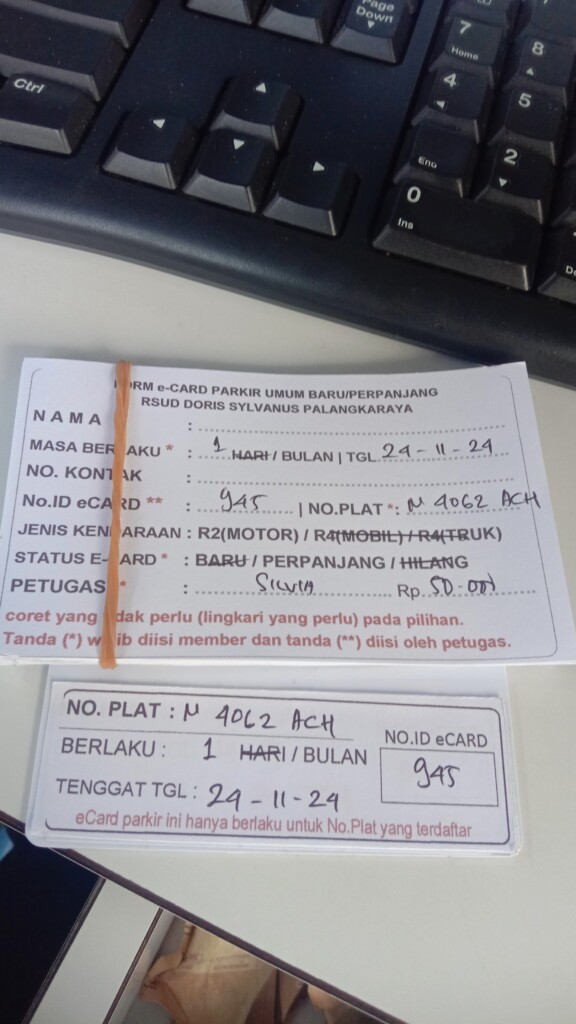 Page
Down
Ctrl
7
Home
8
4
5
Eng
2
0
Ins
FORM e-CARD PARKIR UMUM BARU/PERPANJANG
RSUD DORIS SYLVANUS PALANGKARAYA
NAMA :
MASA BERLAKU * : 1 HARI / BULAN | TGL 24 - 11 - 24
NO. KONTAK :
No.ID eCARD ** : 945 | NO.PLAT *: N 4062 ACH
JENIS KENDARAAN : R2(MOTOR) / R4(MOBIL) / R4(TRUK)
STATUS E-CARD * : BARU / PERPANJANG / HILANG
PETUGAS * : Silvia Rp. 50.000
coret yang tidak perlu (lingkari yang perlu) pada pilihan.
Tanda (*) wajib diisi member dan tanda (**) diisi oleh petugas.
NO. PLAT : N 4062 ACH
NO.ID eCARD
BERLAKU : 1 HARI / BULAN
945
TENGGAT TGL : 24 - 11 - 24
eCard parkir ini hanya berlaku untuk No.Plat yang terdaftar